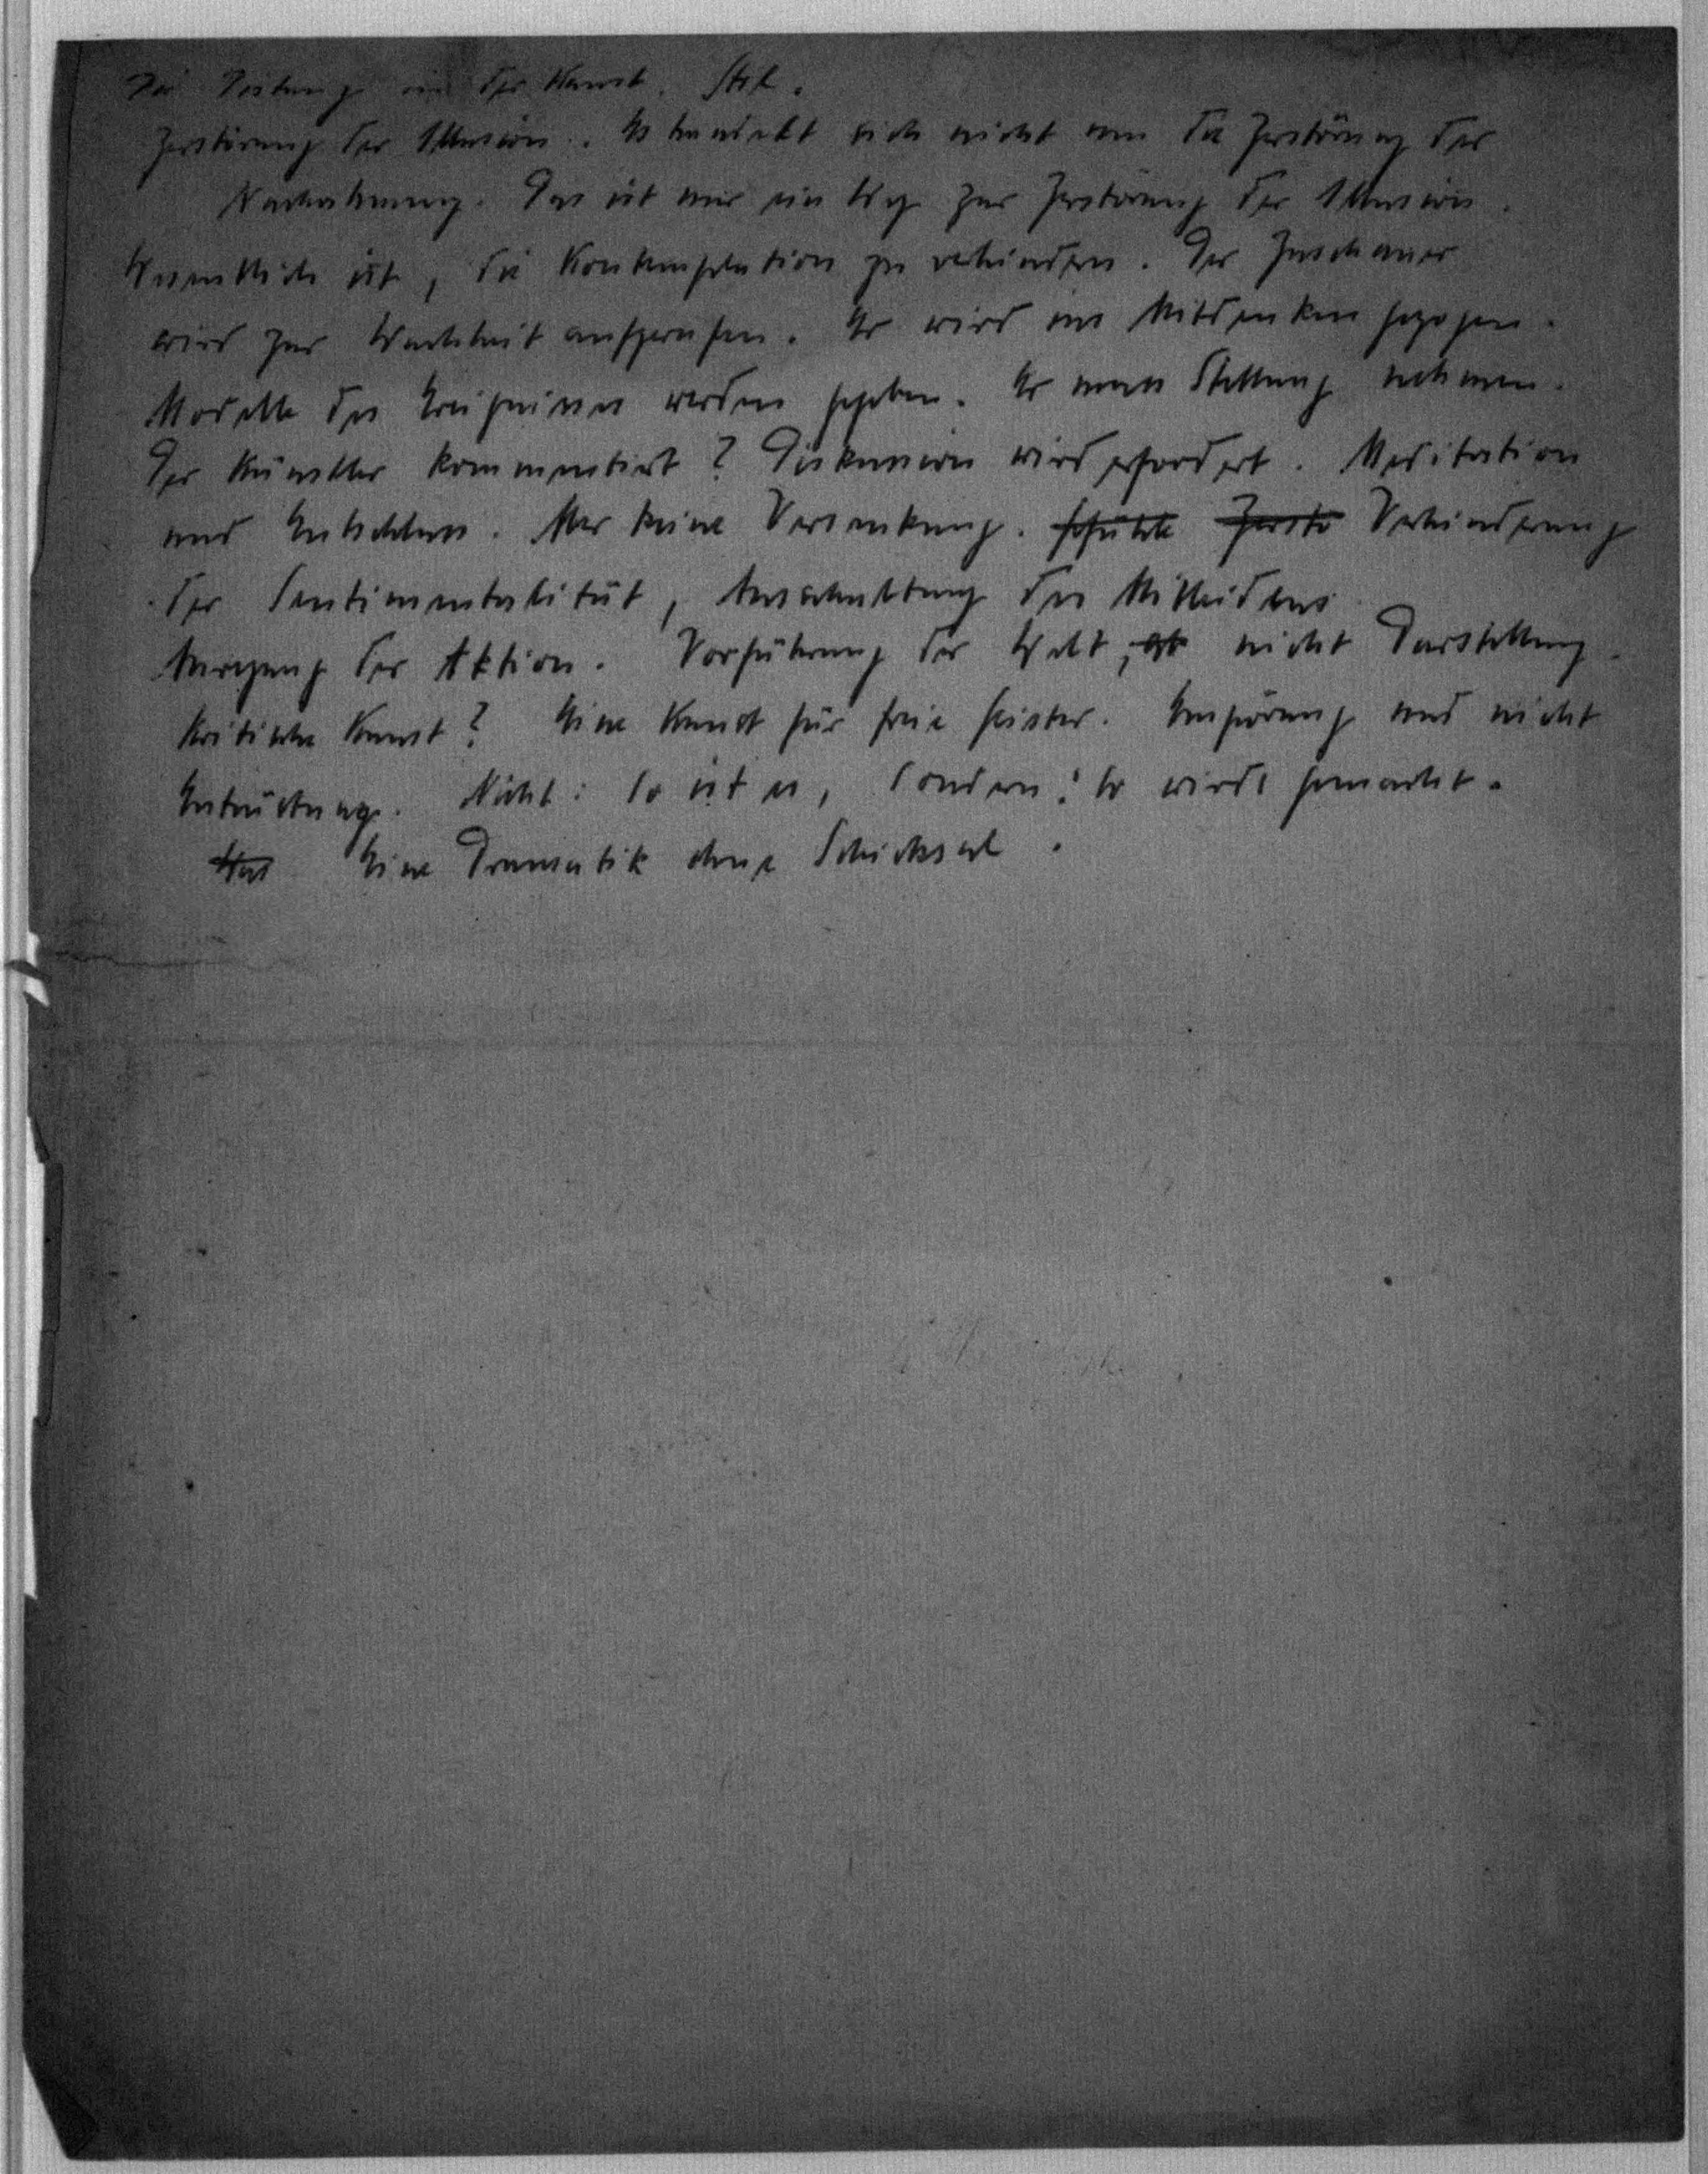 Die Deutung in der Kunst. Stil.
Zerstörung der Illusion. Es handelt sich nicht um die Zerstörung der
Nachahmung. Das ist nur ein Weg zur Zerstörung der Illusion.
Wesentlich ist, die Kontemplation zu verhindern. Der Zuschauer
wird zur Wachheit aufgerufen. Er wird ins Mitdenken gezogen.
Modelle des Ereignisses werden gegeben. Er muss Stellung nehmen.
Der Künstler kommentiert? Diskussion wird erfordert. Meditation
und Entschluss. Aber keine Versenkung. Gefühle Zerstö Verhinderung
der Sentimentalität, Ausschaltung des Mitleidens
Anregung der Aktion. Vorführung der Welt, nicht Darstellung.
Kritische Kunst? Eine Kunst für freie Geister. Empörung und nicht
Entrüstung. Nicht: So ist es, sondern: So wirds gemacht.
Eine Dramatik ohne Schicksal.